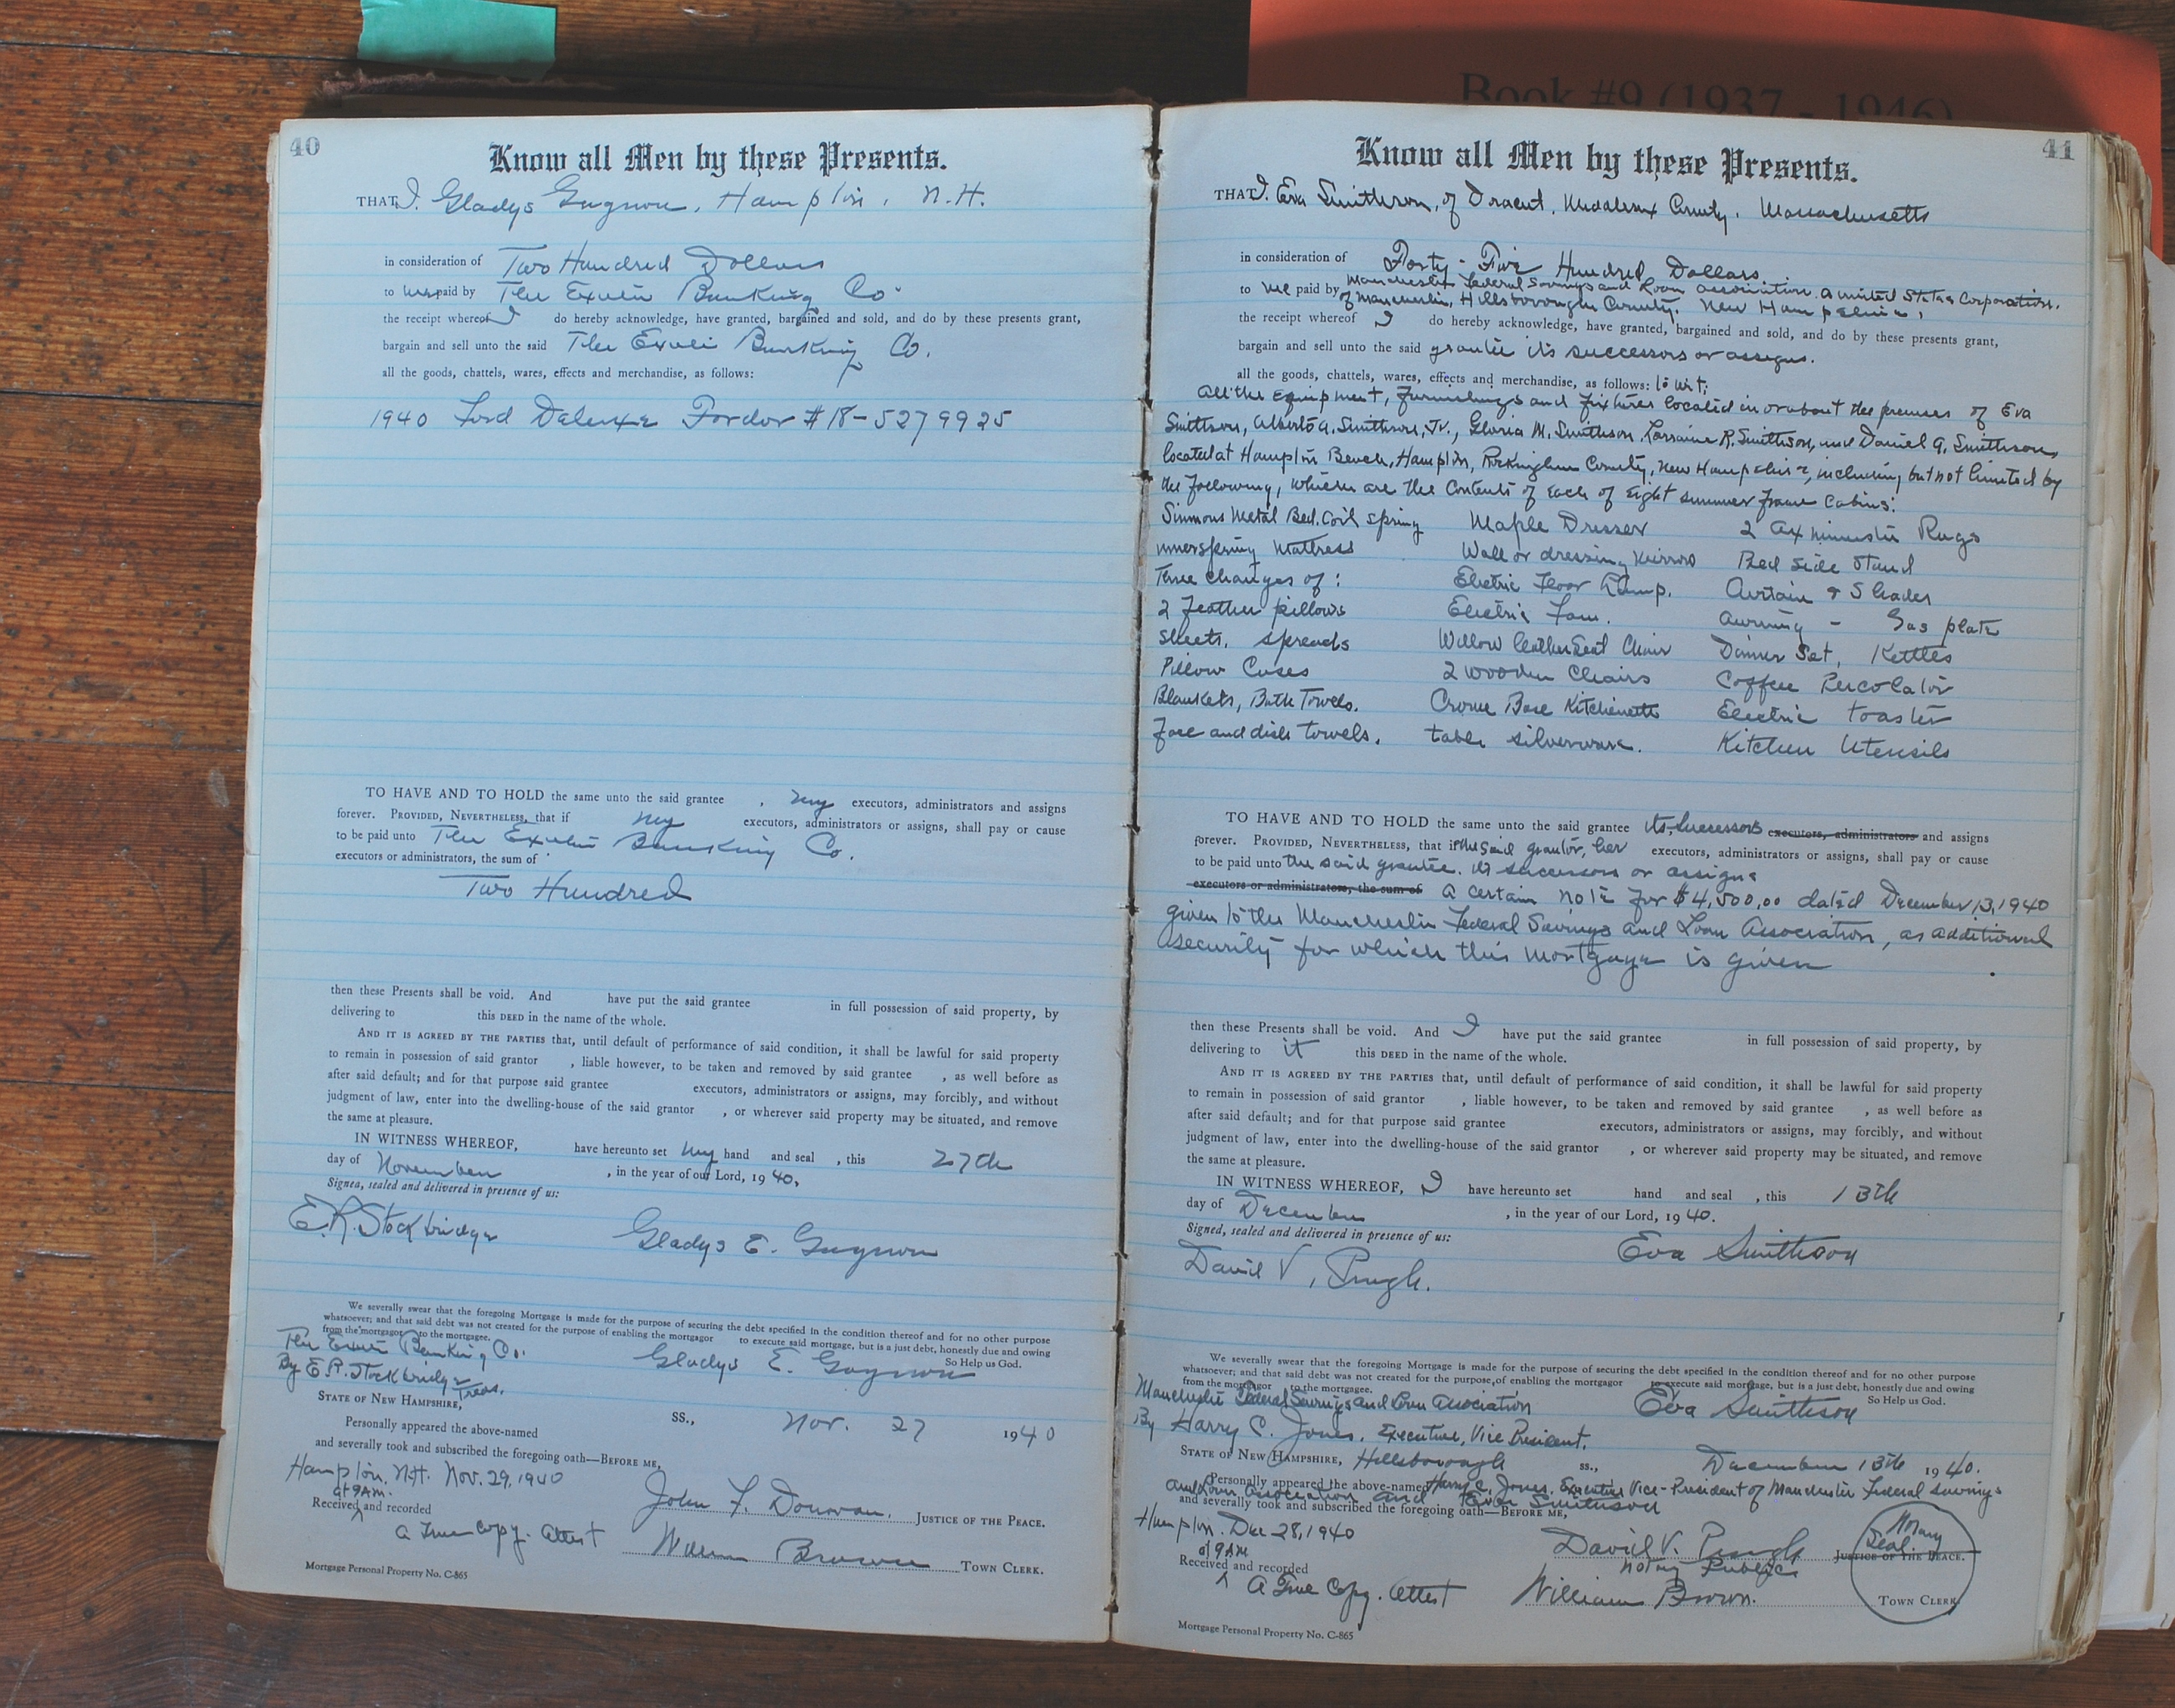 Book #9 (1937 - 1946)
40
Know all Men by these Presents.
THAT I. Gladys Gagnon, Hampton, N.H.
in consideration of Two Hundred Dollars
to me paid by The Exeter Banking Co.
the receipt whereof I do hereby acknowledge, have granted, bargained and sold, and do by these presents grant,
bargain and sell unto the said The Exeter Banking Co.
all the goods, chattels, wares, effects and merchandise, as follows:
1940 Ford Deluxe Fordor #18-5279925
TO HAVE AND TO HOLD the same unto the said grantee , my executors, administrators and assigns
forever. PROVIDED, NEVERTHELESS, that if my executors, administrators or assigns, shall pay or cause
to be paid unto The Exeter Banking Co.
executors or administrators, the sum of
Two Hundred
then these Presents shall be void. And have put the said grantee in full possession of said property, by
delivering to this DEED in the name of the whole.
AND IT IS AGREED BY THE PARTIES that, until default of performance of said condition, it shall be lawful for said property
to remain in possession of said grantor , liable however, to be taken and removed by said grantee , as well before as
after said default; and for that purpose said grantee executors, administrators or assigns, may forcibly, and without
judgment of law, enter into the dwelling-house of the said grantor , or wherever said property may be situated, and remove
the same at pleasure.
IN WITNESS WHEREOF, have hereunto set my hand and seal , this 27th
day of November , in the year of our Lord, 1940,
Signed, sealed and delivered in presence of us:
E.R. Stockbridge Gladys E. Gagnon
We severally swear that the foregoing Mortgage is made for the purpose of securing the debt specified in the condition thereof and for no other purpose
whatsoever; and that said debt was not created for the purpose of enabling the mortgagor to execute said mortgage, but is a just debt, honestly due and owing
from the mortgagor to the mortgagee. So Help us God.
The Exeter Banking Co. Gladys E. Gagnon
By E.R. Stockbridge Treas.
STATE OF NEW HAMPSHIRE, SS., Nov. 27 1940
Personally appeared the above-named
and severally took and subscribed the foregoing oath—BEFORE ME,
Hampton, N.H. Nov. 29, 1940
at 9AM.
Received and recorded John F. Donovan. JUSTICE OF THE PEACE.
A True Copy. Attest William Brown TOWN CLERK.
Mortgage Personal Property No. C-865
41
Know all Men by these Presents.
THAT I. Eva Smithson, of Dracut, Middlesex County, Massachusetts
in consideration of Forty-Five Hundred Dollars
to me paid by Manchester Federal Savings and Loan association, a United States Corporation,
of Manchester, Hillsborough County, New Hampshire,
the receipt whereof I do hereby acknowledge, have granted, bargained and sold, and do by these presents grant,
bargain and sell unto the said grantee its successors or assigns.
all the goods, chattels, wares, effects and merchandise, as follows: to wit;
All the equipment, furnishings and fixtures located in or about the premises of Eva
Smithson, Albert A. Smithson, Jr., Gloria M. Smithson, Lorraine R. Smithson, and Daniel G. Smithson,
located at Hampton Beach, Hampton, Rockingham County, New Hampshire, including but not limited by
the following, which are the contents of each of eight summer frame cabins:
Simmons Metal Bed. Coil spring Maple Dresser 2 Axminster Rugs
innerspring mattress Wall or dressing mirror Bed side Stand
Three changes of: Electric Floor Lamp. Curtain & Shades
2 feather pillows Electric Fan. Awning - Gas plate
sheets, spreads Willow leather seat Chair Dinner Set, Kettles
Pillow Cases 2 wooden Chairs Coffee Percolator
Blankets, Bath Towels. Crome Base Kitchenette Electric toaster
Face and dish towels. table silverware. Kitchen Utensils
TO HAVE AND TO HOLD the same unto the said grantee its successors executors, administrators and assigns
forever. PROVIDED, NEVERTHELESS, that if the said grantor, her executors, administrators or assigns, shall pay or cause
to be paid unto the said grantee. its successors or assigns
executors or administrators, the sum of a certain note for $4,500.00 dated December 13, 1940
given to the Manchester Federal Savings and Loan Association, as additional
security for which this mortgage is given
then these Presents shall be void. And I have put the said grantee in full possession of said property, by
delivering to it this DEED in the name of the whole.
AND IT IS AGREED BY THE PARTIES that, until default of performance of said condition, it shall be lawful for said property
to remain in possession of said grantor , liable however, to be taken and removed by said grantee , as well before as
after said default; and for that purpose said grantee executors, administrators or assigns, may forcibly, and without
judgment of law, enter into the dwelling-house of the said grantor , or wherever said property may be situated, and remove
the same at pleasure.
IN WITNESS WHEREOF, I have hereunto set hand and seal , this 13th
day of December , in the year of our Lord, 1940.
Signed, sealed and delivered in presence of us:
David V. Pugh. Eva Smithson
We severally swear that the foregoing Mortgage is made for the purpose of securing the debt specified in the condition thereof and for no other purpose
whatsoever; and that said debt was not created for the purpose of enabling the mortgagor to execute said mortgage, but is a just debt, honestly due and owing
from the mortgagor to the mortgagee. So Help us God.
Manchester Federal Savings and Loan Association Eva Smithson
By Harry C. Jones. Executive, Vice President.
STATE OF NEW HAMPSHIRE, Hillsborough ss., December 13th 1940.
Personally appeared the above-named Harry C. Jones. Executive Vice-President of Manchester Federal Savings
and Loan Association and Eva Smithson
and severally took and subscribed the foregoing oath—BEFORE ME,
Hampton. Dec 28, 1940
at 9AM
Received and recorded David V. Pugh JUSTICE OF THE PEACE.
Notary Public
Notary Seal
A True Copy. Attest William Brown. TOWN CLERK
Mortgage Personal Property No. C-865